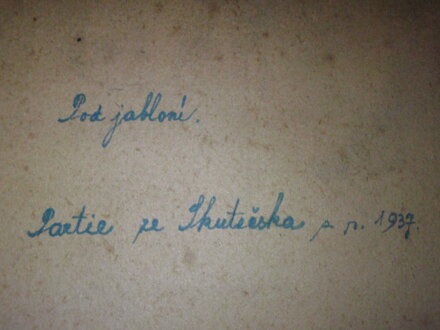 Pod jabloní.
Partie ze Skutečska z r. 1937.